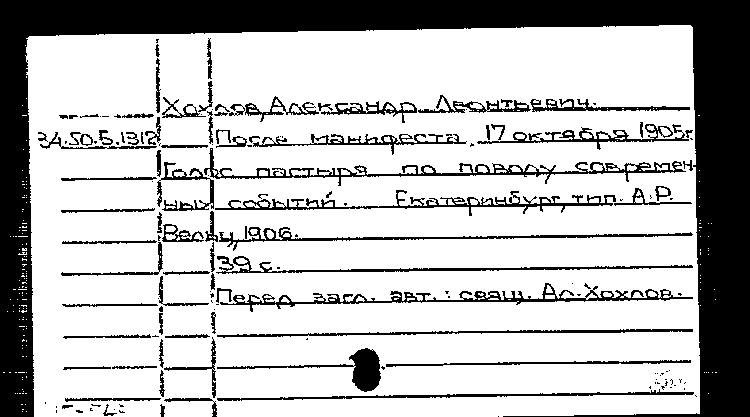 Хохлов, Александр Леонтьевич.
34.50.5.1312 После манифеста 17 октября 1905г
Голос пастыря по поводу современ-
ных событий. Екатеринбург, тип. А.Р.
Вельц, 1906.
39 с.
Перед загл. авт.: свящ. Ал. Хохлов.